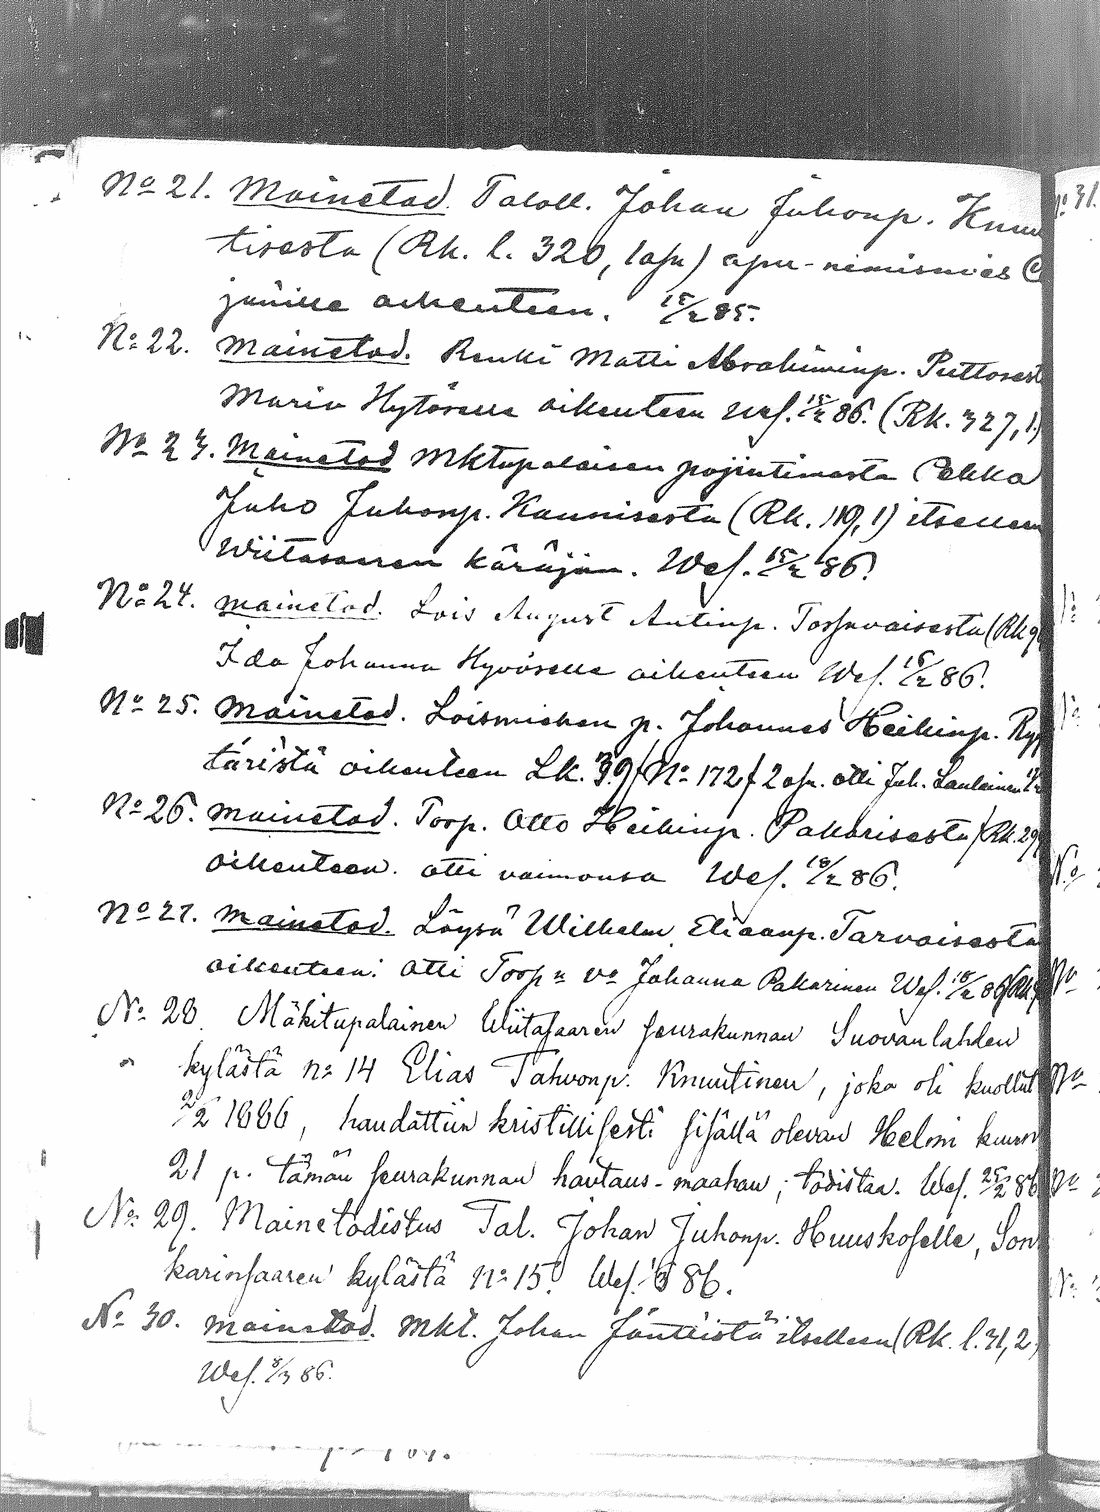 No 21. Mainetod. Taloll. Johan Juhonp. Knuu
tisesta (Rk. l. 320, lapu) apu-nimismies
oikeuteen. 15/2 85.
No 22. Mainetod. Renki Matti Abrahiminp. Puttosest
Maria Hytöselle oikeuteen Wsf. 15/2 86. (Rk. 327, 1.)
No 23. Mainetod Mktupalaisen pojintimasta Pekka
Juho Juhonp. Kaunisesta (Rk. 119, 1) itselleen
Wiitasaaren käräjiin. Wsf. 15/2 86.
No 24. Mainetod. Lois August Antinp. Tossavaisesta (Rk 9
Ida Johanna Hyvöselle oikeuteen Wsf. 16/2 86.
No 25. Mainetod. Loismiehen p. Johannes Heikinp. Ryy
täristä oikeuteen Lk. 39 / No 172 / 2 op. otti Joh. Laulainen
No 26. Mainetod. Torp. Otto Heikinp. Pakarisesta (Rk. 29
oikeuteen. otti vaimonsa Wsf. 18/2 86.
No 27. Mainetod. Löysä Wilhelm Eliaanp. Tarvaisesta
oikeuteen. Otti Torp:n vo Johanna Pakarinen Wsf. 18/2 86 (Rk
No 28. Mäkitupalainen Wiitasaaren seurakunnan Suovanlahden
kylästä no 14 Elias Tahvonp. Knuutinen, joka oli kuollut
2/2 1886, haudattiin kristillisesti sisällä olevan Helmi kuun
21 p. tämän seurakunnan hautaus-maahan; todistaa. Wsf. 25/2 86
No 29. Mainetodistus Tal. Johan Juhonp. Huuskoselle, Son
karinsaaren kylästä no 15. Wsf. 86.
No 30. Mainetod. Mkt. Johan Jäntistä itselleen (Rk. l. 31, 2,
Wsf. 8/3 86.